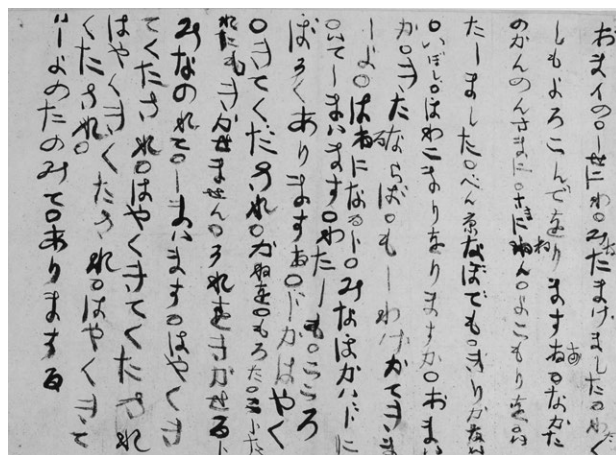 おまイの○しせにわ○みなたまけました○わたく
しもよろこんでをりまするね○なかた
のかんのんさまに○さまにねん○よこもりを○い
たしました○べん京なぼでも○きりかない
○いぼし○ほわこまりをりますか○おまい
か○きたならば○もしわけかてきま
しよ○はるになるト○みなほかいドに
○いてしまいます○わたしも○こころ
ぼそくありまするね○ドカはやく
○きてくだされ○かねを○もろた○ことた
れにもきかせません○それをきかせるト
みなのれて○しまいます○はやくき
てくたされ○はやくきてくたされ
はやくきてくたされ○はやくきて
くたされ○
いしよのたのみて○ありまする